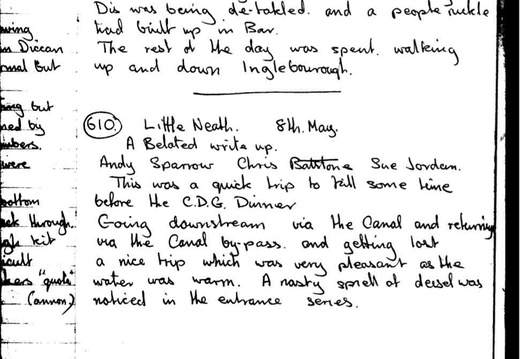 Dis was being de-tackled. and a people ruckle
had built up in Bar.
The rest of the day was spent walking
up and down Inglebourough.
610. Little Neath. 8th. May.
A Belated write up.
Andy Sparrow Chris Battstone Sue Jordan.
This was a quick trip to kill some time
before the C.D.G. Dinner
Going downstream via the Canal and returning
via the Canal by-pass. and getting lost
a nice trip which was very pleasant as the
water was warm. A nasty smell of deisel was
noticed in the entrance series.
but
by
were
through.
kit
"quote"
(annon)